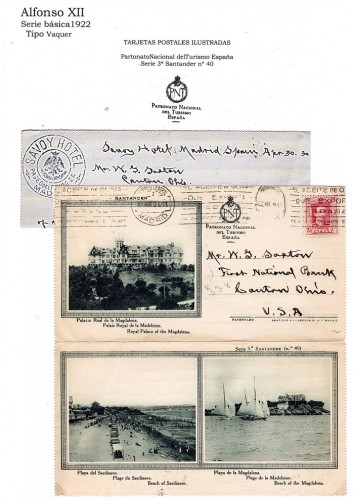 Alfonso XII
Serie básica1922
Tipo Vaquer
TARJETAS POSTALES ILUSTRADAS
PartonatoNacional delTurismo España
Serie 3ª Santander nº 40
PNT
PATRONATO NACIONAL
DEL TURISMO
ESPAÑA
SAVOY HOTEL
MADRID
Savoy Hotel, Madrid Spain, Apr. 30. 30
Mr. W. T. Saxton
Canton Ohio.
"SANTANDER"
MADRID
PNT
PATRONATO NACIONAL
DEL TURISMO
ESPAÑA
Mr. W. T. Saxton
First National Bank
Canton Ohio.
U.S.A
PATENTADO
Palacio Real de la Magdalena.
Palais Royal de la Madeleine.
Royal Palace of the Magdalena.
Serie 3.ª SANTANDER (n.º 40)
Playa del Sardinero.
Plage du Sardinero.
Beach of Sardinero.
Playa de la Magdalena.
Plage de la Madeleine.
Beach of the Magdalena.